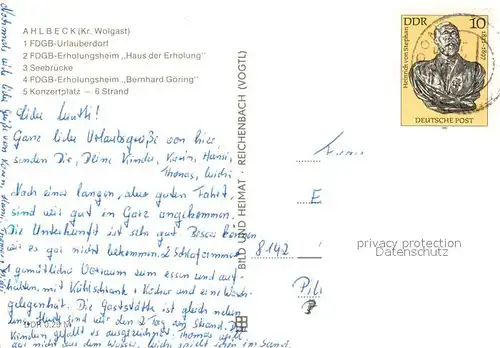 AHLBECK (Kr. Wolgast)
1 FDGB-Urlauberdorf
2 FDGB-Erholungsheim „Haus der Erholung"
3 Seebrücke
4 FDGB-Erholungsheim „Bernhard Göring"
5 Konzertplatz – 6 Strand
Liebe Mutti!
Ganz liebe Urlaubsgrüße von hier
senden Dir, Deine Kinder, Karin, Hansi,
Thomas,
Nach einer langen, aber guten Fahrt,
sind wir gut in Garz angekommen.
Die Unterkunft ist sehr gut
wir es gar nicht bekommen. 2 Schlafzimmer
1 gemütliche Vorraum zum essen und auf-
halten, mit Kühlschrank + Kocher und eine Wasch-
gelegenheit. Die Gaststätte ist gleich neben
sind wir den 2 Tag am Strand. Den
Kindern gefällt es ausgezeichnet. Thomas
gar nicht aus dem Wasser. spielt schön im Sand.
Nochmals viele liebe Grüße von Karin, Hansi,
BILD UND HEIMAT · REICHENBACH (VOGTL)
DDR 0,25 M
DDR 10
Heinrich von Stephan
1831-1897
DEUTSCHE POST
E
8142
Pil
privacy protection
Datenschutz